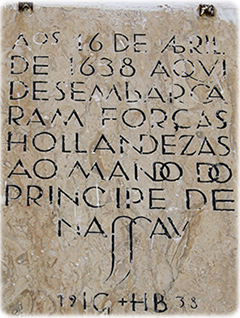 AOS 16 DE ABRIL
DE 1638 AQUI
DESEMBARCA
RAM FORÇAS
HOLLANDEZAS
AO MANDO DO
PRINCIPE DE
NASSAU
19 IG + HB 38